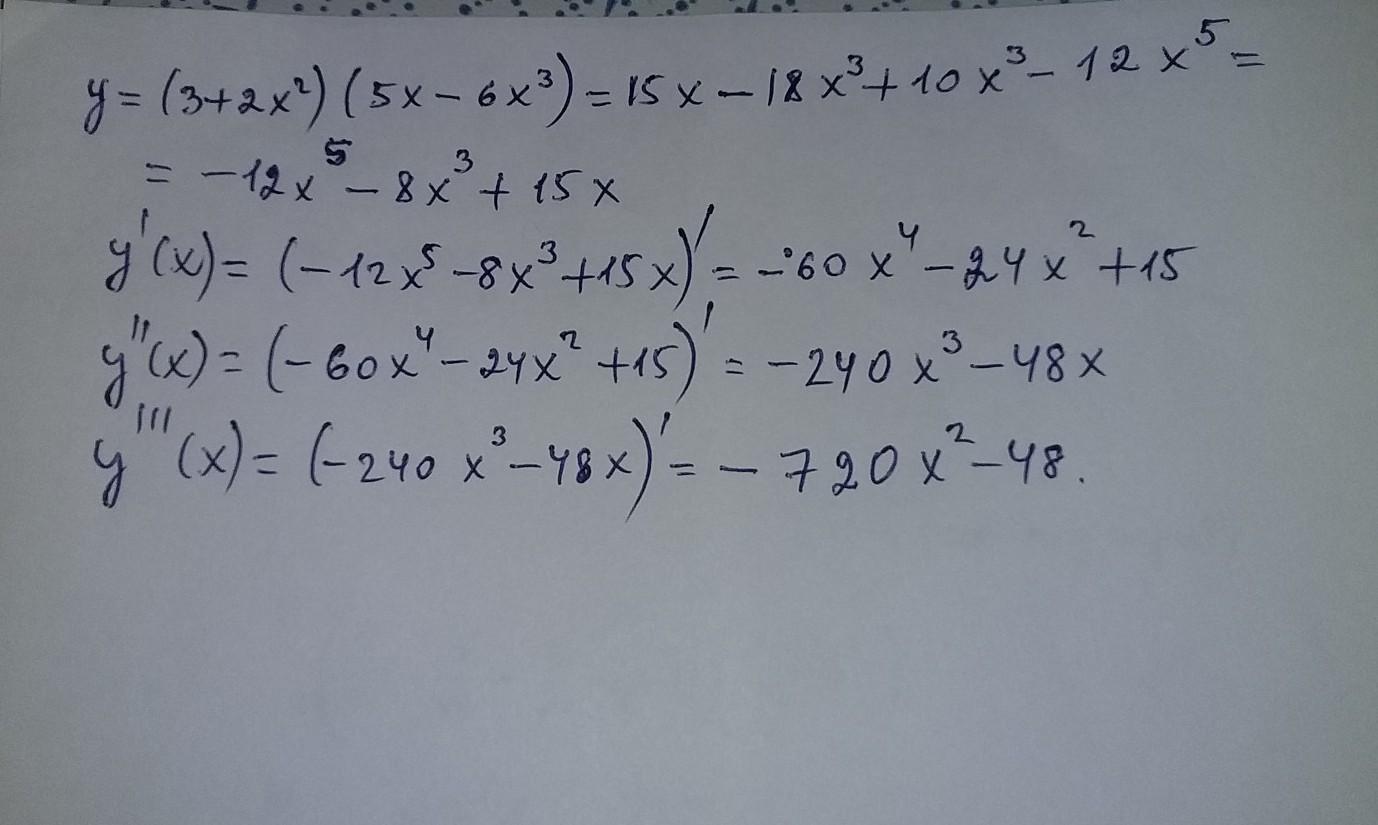 y = (3+2x²)(5x − 6x³) = 15x − 18x³ + 10x³ − 12x⁵ =
= −12x⁵ − 8x³ + 15x
y'(x) = (−12x⁵ − 8x³ + 15x)' = −60x⁴ − 24x² + 15
y''(x) = (−60x⁴ − 24x² + 15)' = −240x³ − 48x
y'''(x) = (−240x³ − 48x)' = −720x² − 48.